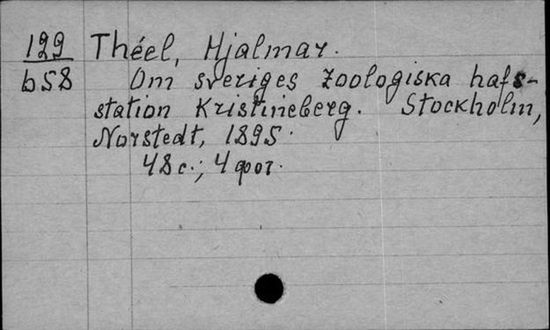 129 Théel, Hjalmar.
b58 Om sveriges zoologiska hafs-
station Kristineberg. Stockholm,
Norstedt, 1895.
48 с.; 4 фот.